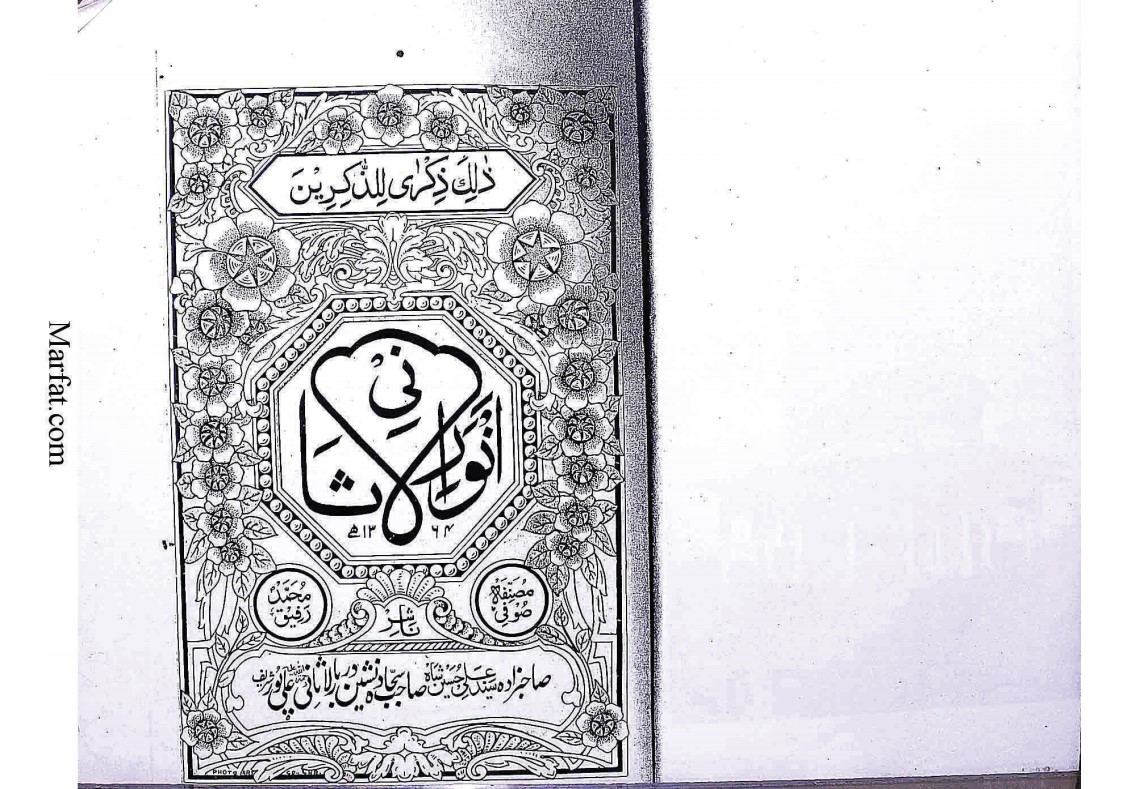 ذٰلِكَ ذِكْرٰى لِلذّٰكِرِيْنَ
انوارِ لاثانی
۱۳۶۴ھ
مصنفہ صوفی محمد رفیق
ناشر
صاحبزادہ سید علی حسین شاہ صاحب سجادہ نشین دربار لاثانی علی پور شریف
PHOTO ART
Marfat.com